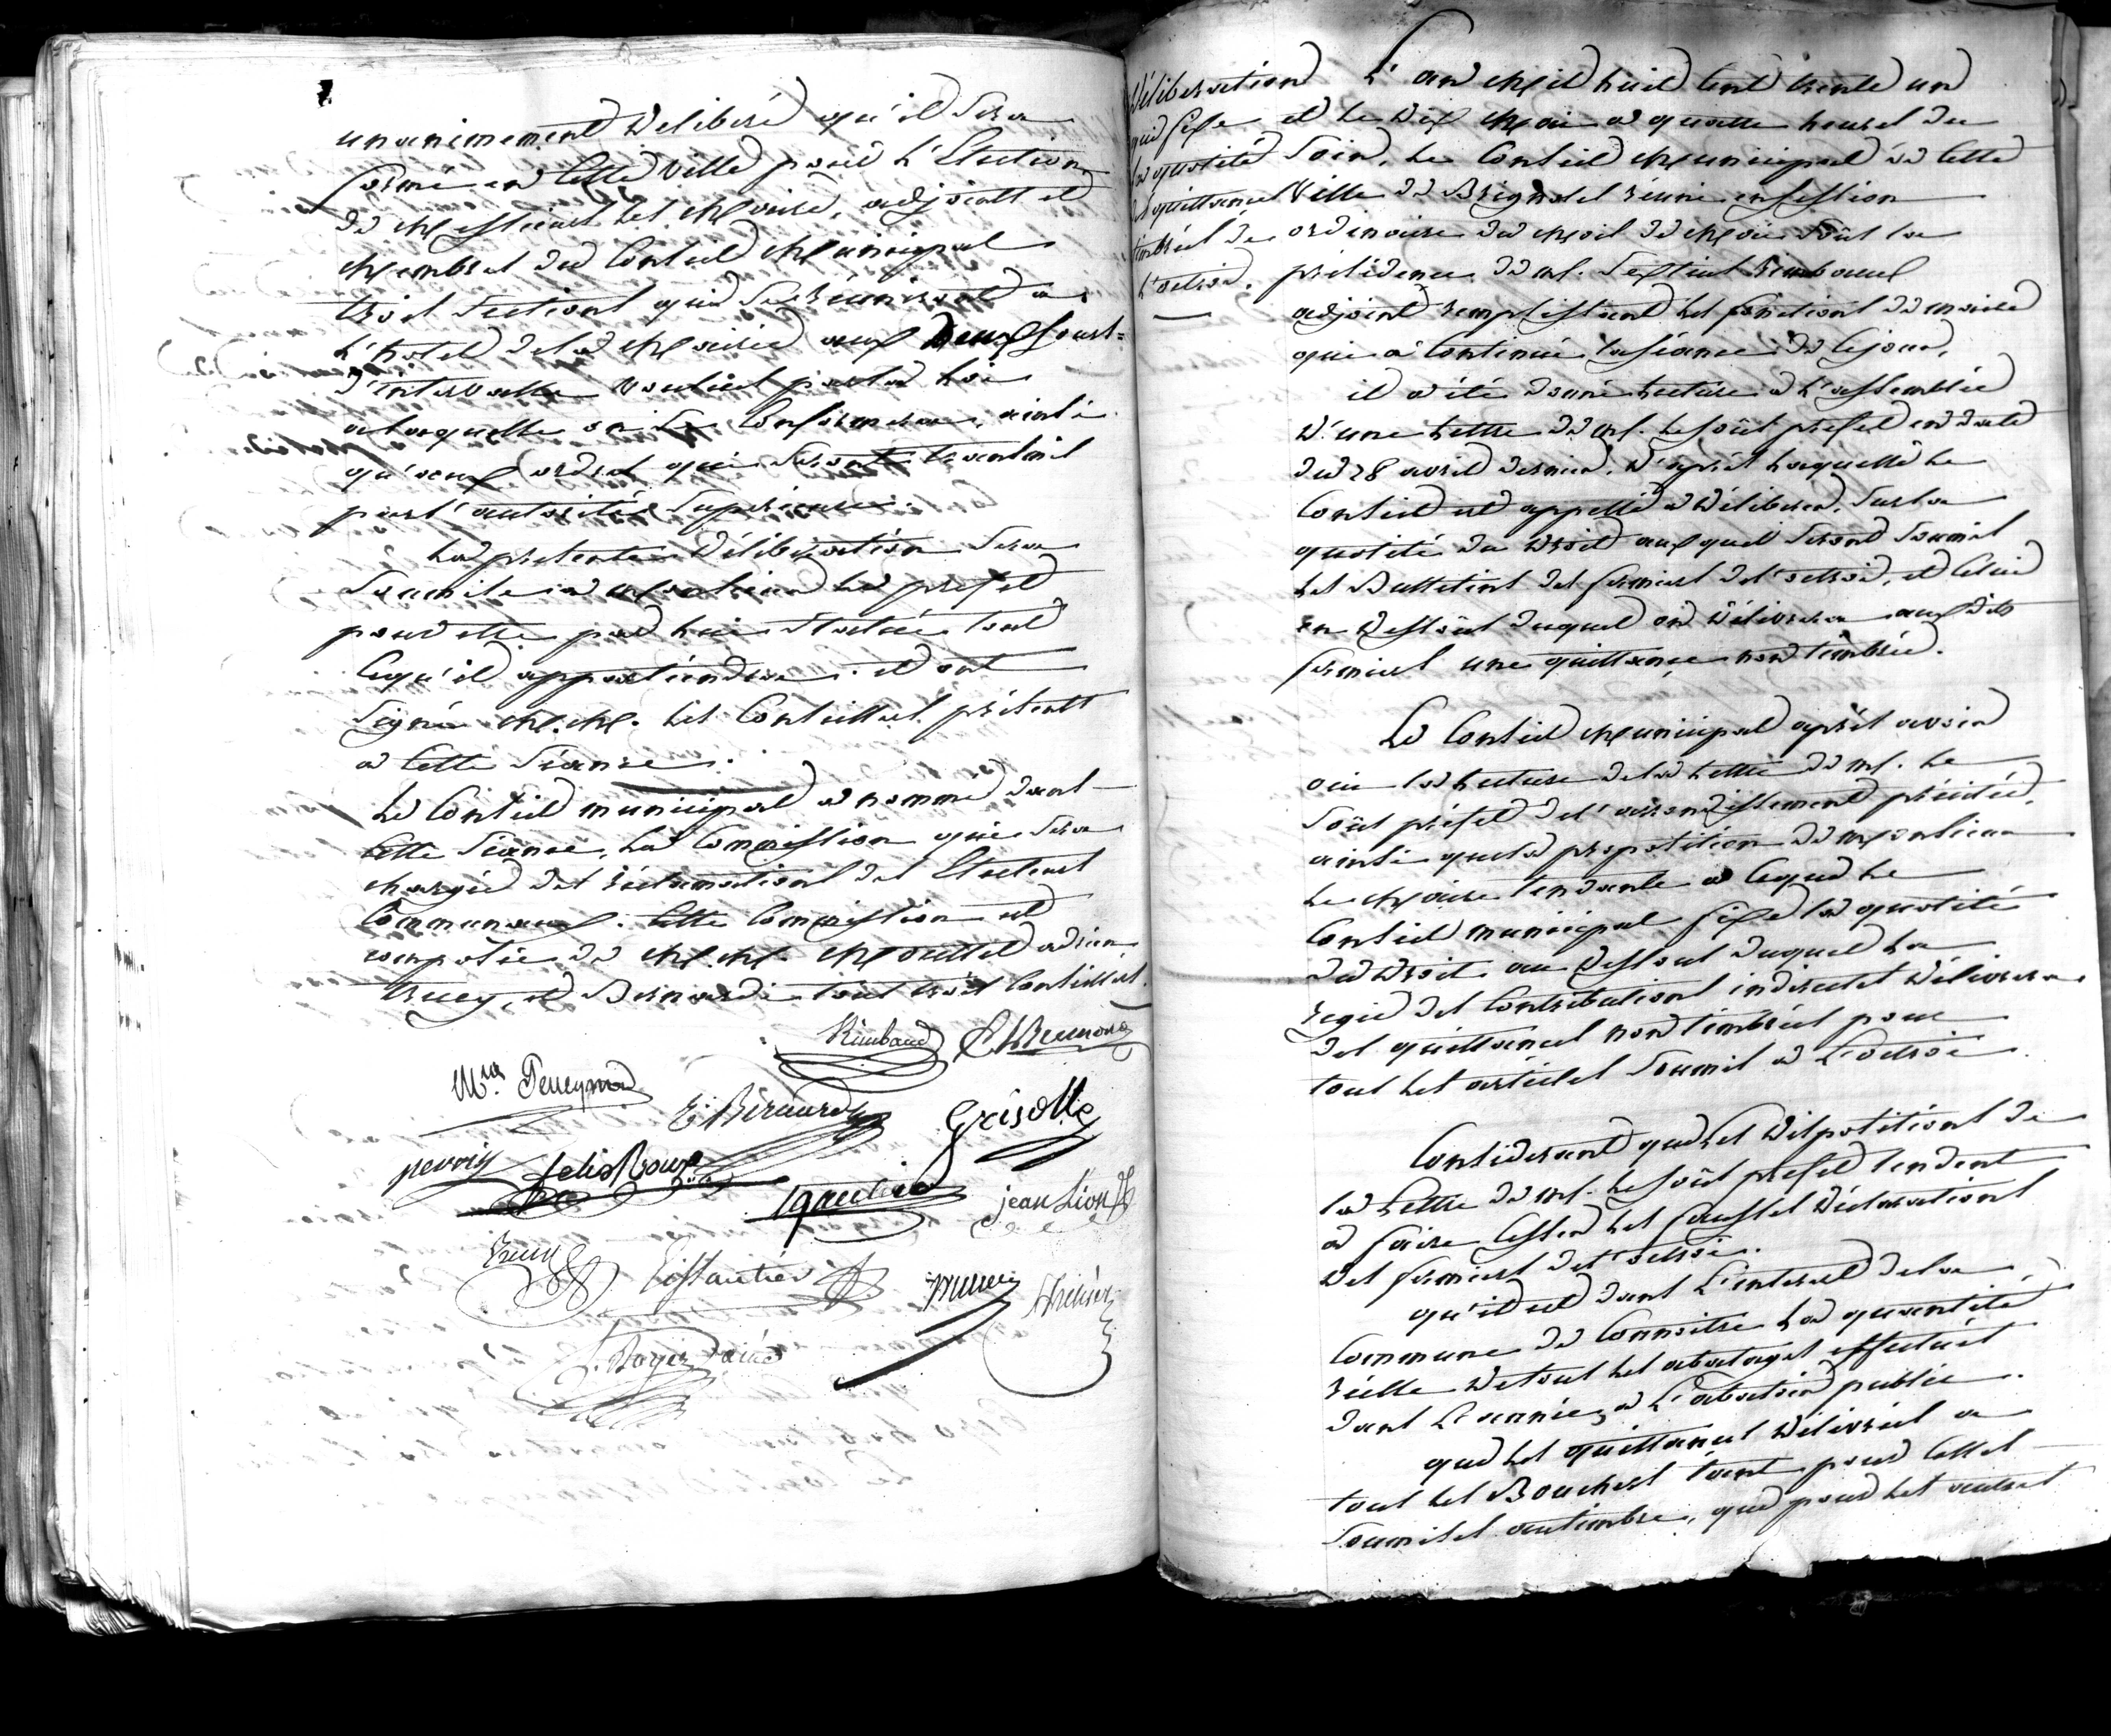 unanimement délibéré qu'il sera
formé en cette ville pour l'Election
de Messieurs les Maire, adjoints et
Membres du Conseil Municipal
trois sections qui se réuniront a
l'hotel de la Mairie aux deux jours
d'intervalle voulus par la loi
a laquelle on se conformera, ainsi
qu'aux ordres qui seront transmis
par l'autorité supérieure.
La présente délibération sera
soumise a Monsieur le préfet
pour être par lui statué tout
ce qu'il appartiendra. et ont
signé M.M. les Conseillers présents
a cette séance.
Le Conseil municipal a nommé dans
cette séance, la Commission qui sera
chargée des réclamations des Electeurs
Communaux. Cette Commission est
composée de M.M. Mouttet adrien
Trucy, et Bernardi tous trois Conseillers.
Rimbaud
E. Bernardy
Grisolle
felix Roux
jean Lion
Trucy
Délibération
qui fixe
la quotité
des quittances
timbrées de
l'octroi.
L'an Mil huit cent trente un
et le dix Mai a quatre heures du
soir, le Conseil Municipal de cette
Ville de Brignoles réuni en session
ordinaire du Mois de Mai sous la
présidence de M. Sextius Rimbaud
adjoint remplissant les fonctions de maire
qui a continué la séance de ce jour,
il a été donné lecture a l'assemblée
d'une lettre de M. le sous préfet en date
du 28 avril dernier, d'après laquelle le
Conseil est appellé a délibérer, sur la
quotité du droit auxquel seront soumis
les Bulletins des fermiers de l'octroi, et celui
en dessous duquel on délivrera aux dits
fermiers une quittance non timbrée.
Le Conseil Municipal après avoir
oui la lecture de la lettre de M. le
sous préfet de l'arrondissement précitée,
ainsi que la proposition de Monsieur
le Maire tendante a ce que le
Conseil municipal fixe la quotité
du droit au dessous duquel la
régie des Contributions indirectes délivrera
des quittances non timbrées pour
tous les articles soumis a l'octroi.
Considérant que les dispositions de
la lettre de M. le sous préfet tendent
a faire cesser les fausses déclarations
des fermiers de l'octroi.
qu'il est dans l'intérêt de la
Commune de connoitre la quantité
réelle de tous les abatages effectués
dans l'année, a l'abatoir public.
que les quittances délivrées a
tous les Bouchers tant pour celles
soumises au timbre, que pour les autres